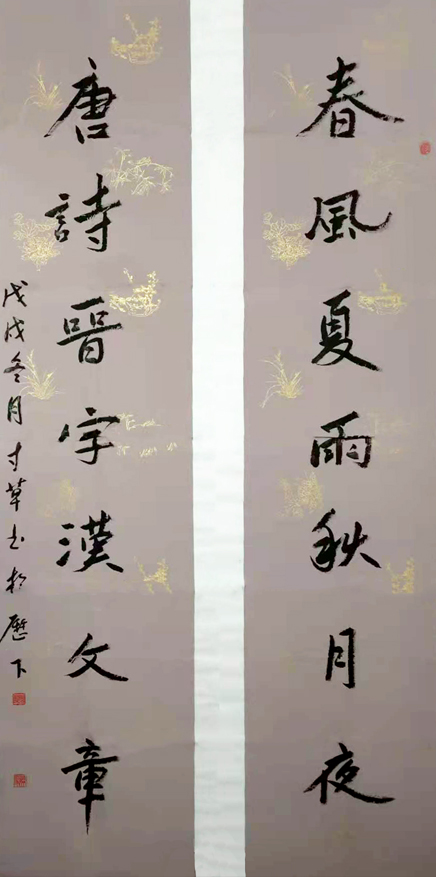 春風夏雨秋月夜
唐詩晉字漢文章
戊戌冬月寸草书於歷下